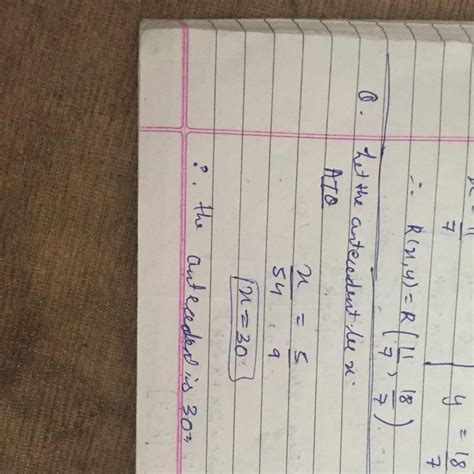 x = 11/7 | y = 18/7
∴ R(x,y) = R(11/7, 18/7)
Q. Let the antecedent be x.
ATQ
x/54 = 5/9
x = 30
∴ the antecedent is 30.